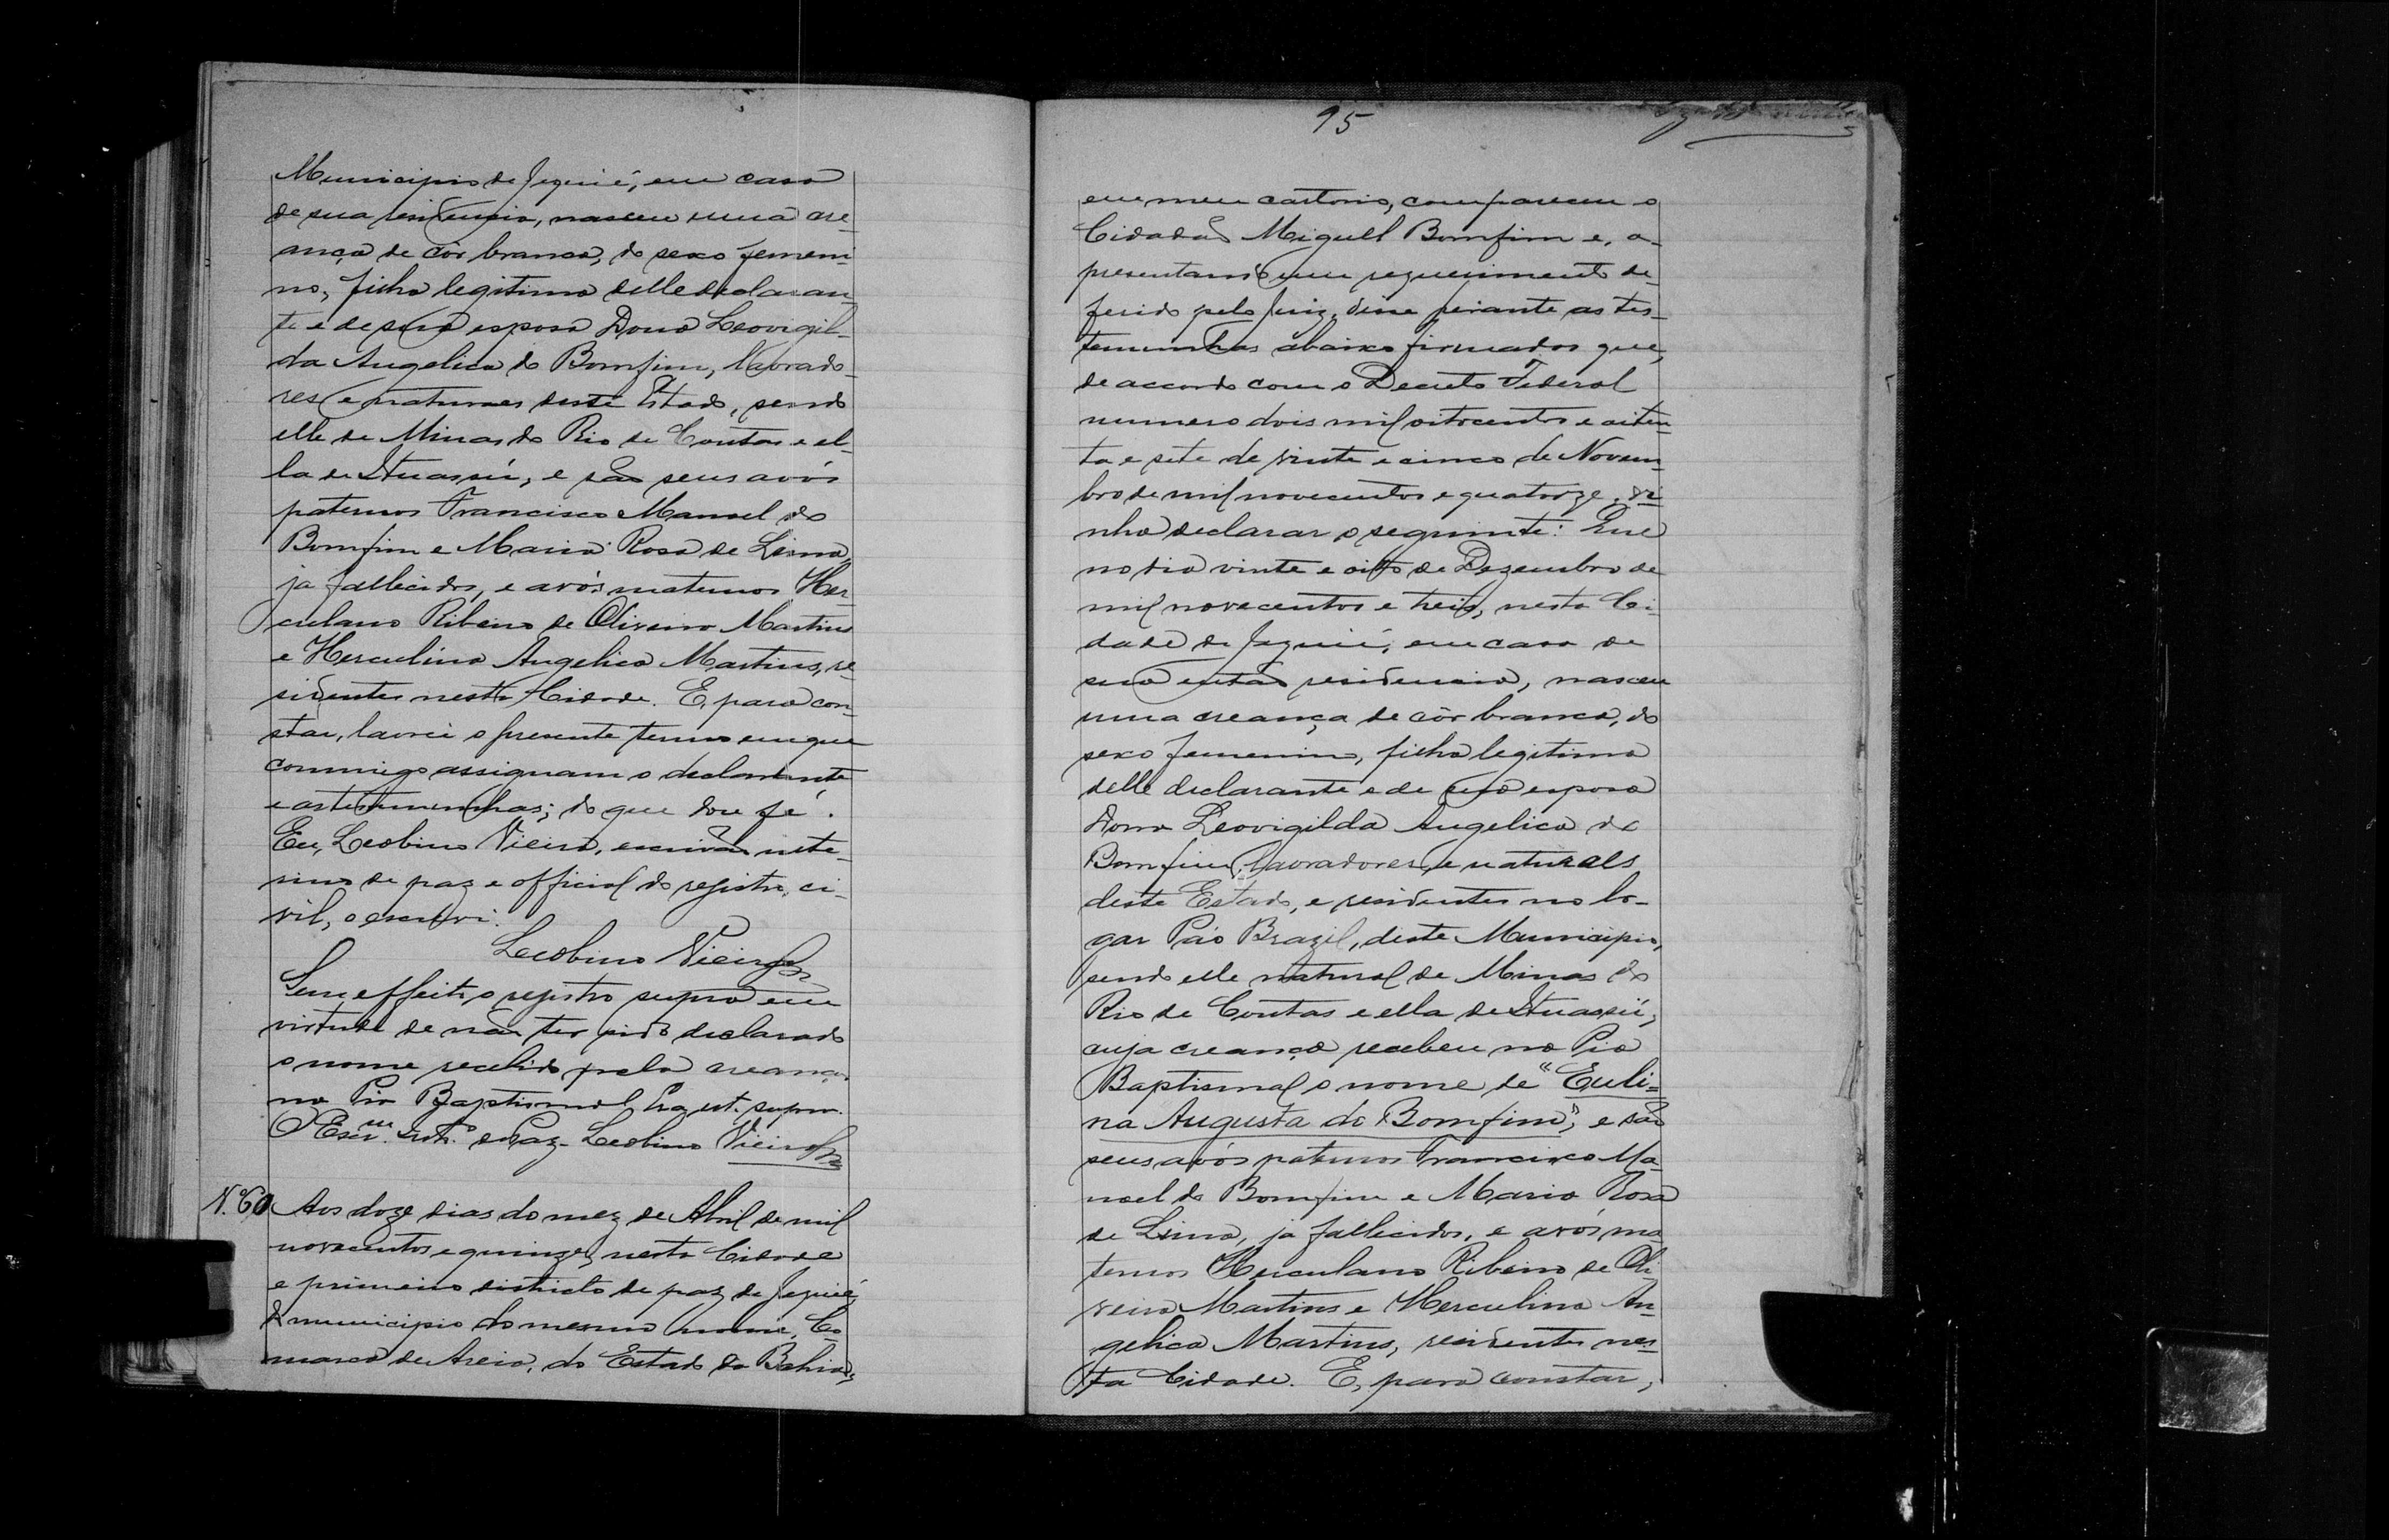 Municipio de Jequié, em casa
de sua residencia, nasceu uma cre-
ança de côr branca, do sexo femeni-
no, filha legitima delle declaran-
te e de sua esposa Dona Leovigil-
da Angelica do Bomfim, lavrado-
res e naturaes deste Estado, sendo
elle de Minas do Rio de Contas e el-
la de Ituassú, e são seus avós
paternos Francisco Manoel do
Bomfim e Maria Rosa de Lima,
já fallecidos, e avós maternos Her-
culano Ribeiro de Oliveira Martins
e Herculina Angelica Martins, re-
sidentes nesta Cidade. E, para con-
star, lavrei o presente termo em que
commigo assignam o declarante
e as testemunhas; do que dou fé.
Eu, Leobino Vieira, escrivão inte-
rino de paz e official do registro ci-
vil, o escrevi.
Leobino Vieira
Sem effeito o registro supra em
virtude de não ter sido declarado
o nome recebido pela creança
na Pia Baptismal Era ut supra.
O Escr.m Int.o de Paz Leobino Vieira
N. 60 Aos doze dias do mez de Abril de mil
novecentos e quinze, nesta Cidade
e primeiro districto de paz de Jequié,
municipio do mesmo nome, Co-
marca de Areia, do Estado da Bahia,
95
em meu cartorio, compareceu o
Cidadão Miguel Bomfim e, a-
presentando um requerimento de-
ferido pelo Juiz, disse perante as tes-
temunhas abaixo firmadas que,
de accordo com o Decreto Federal
numero dois mil oitocentos e oiten-
ta e sete de vinte e cinco de Novem-
bro de mil novecentos e quatorze, vi-
nha declarar o seguinte: Que
no dia vinte e oito de Dezembro de
mil novecentos e treis, nesta Ci-
dade de Jequié, em casa de
sua então residencia, nasceu
uma creança de côr branca, do
sexo femenino, filha legitima
delle declarante e de sua esposa
Dona Leovigilda Angelica do
Bomfim, lavradores, e naturaes
deste Estado, e residentes no lo-
gar Páo Brazil, deste Municipio,
sendo elle natural de Minas do
Rio de Contas e ella de Ituassú,
cuja creança recebeu na Pia
Baptismal o nome de "Euli-
na Augusta do Bomfim", e são
seus avós paternos Francisco Ma-
noel do Bomfim e Maria Rosa
de Lima, já fallecidos, e avós ma-
ternos Herculano Ribeiro de Oli-
veira Martins e Herculina An-
gelica Martins, residentes nes-
ta Cidade. E, para constar,